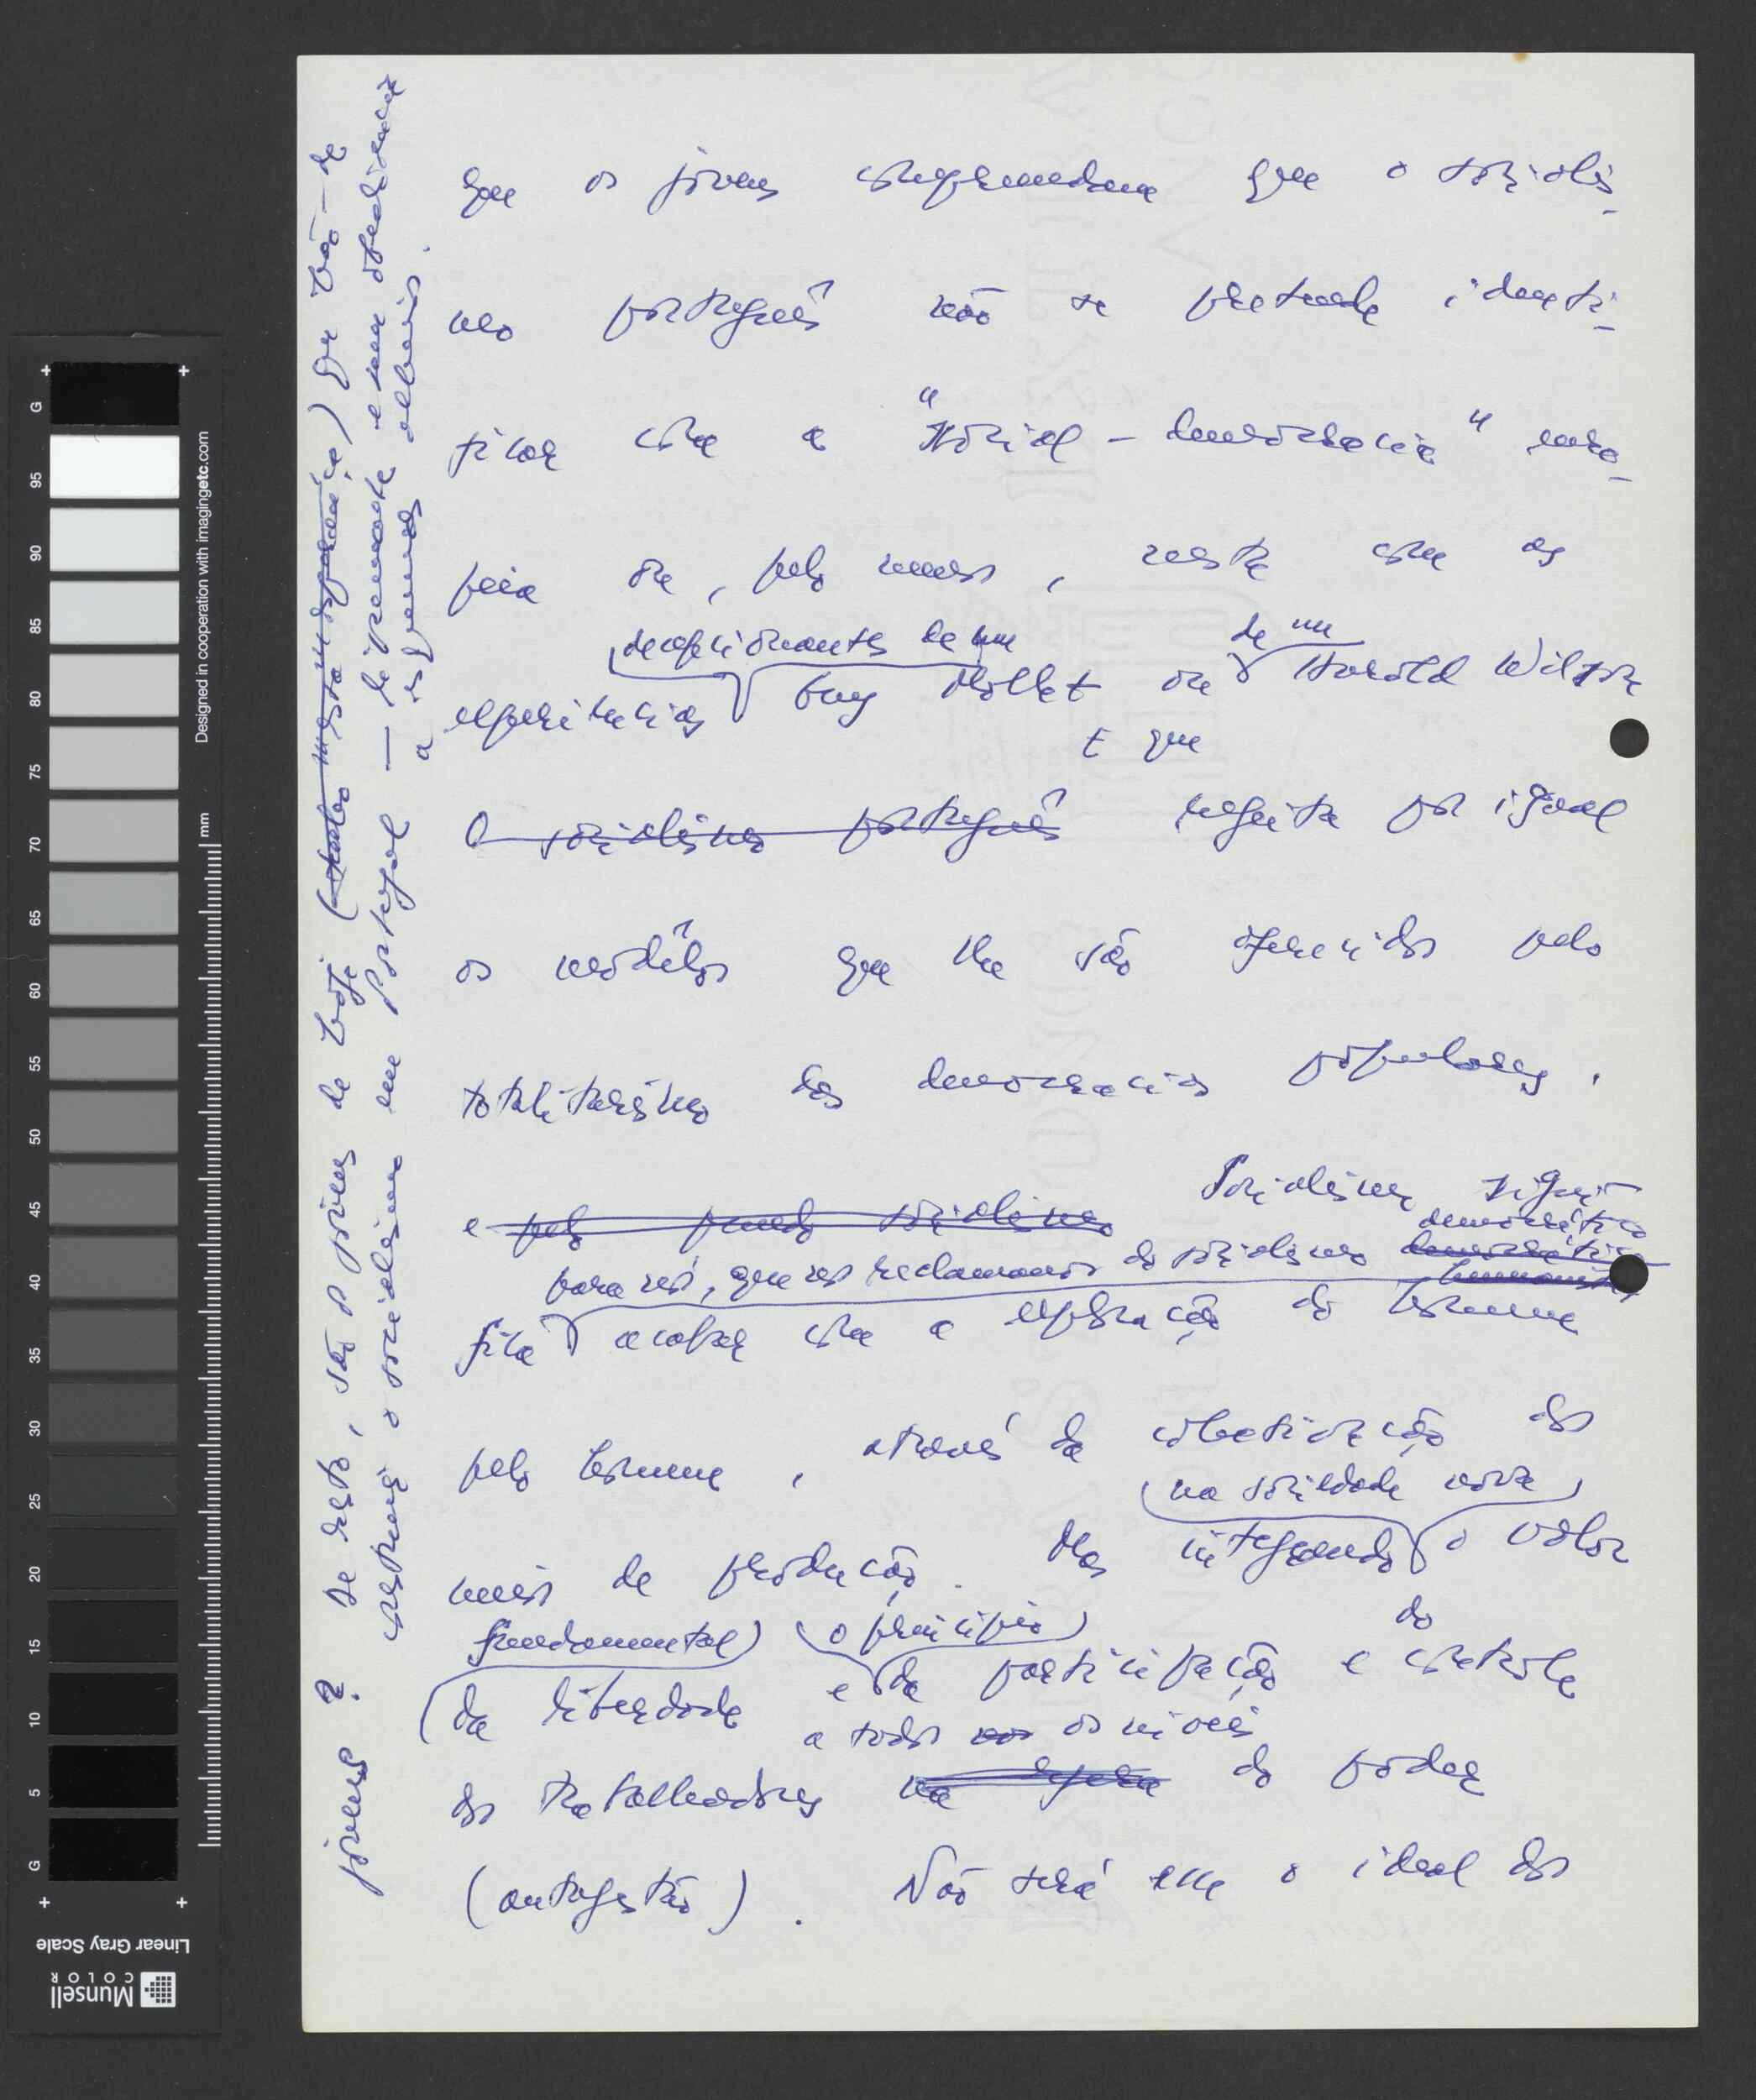 que os jovens compreendam que o socialis-
mo português não se pretende identi-
ficar com a "social-democracia" euro-
peia ou, pelo menos, nesta com as
decepcionantes de um
de um
experiências Guy Mollet ou Harold Wilson
E que
O socialismo português rejeita por igual
os modêlos que lhe são oferecidos pelo
totalitarismo das democracias populares.
e pelo socialismo Socialismo signi-
democrático
para nós, que nos reclamamos do socialismo democrático
fica acabar com a exploração do homem
pelo homem, através da colectivização dos
na sociedade nova
meios de produção. Mas integrando o valor
fundamental o princípio do
da liberdade e da participação e controle
a todos os níveis
dos trabalhadores na do poder
(autogestão). Não será esse o ideal dos
jovens? De resto, são os jovens de hoje que hão-de
construir o socialismo em Portugal — livremente e sem obediência
a esquemas alheios.
Designed in cooperation with imagingetc.com
mm
G 95 90 85 80 75 70 65 60 55 50 45 40 35 30 25 20 15 10 5 G
Linear Gray Scale
Munsell
COLOR